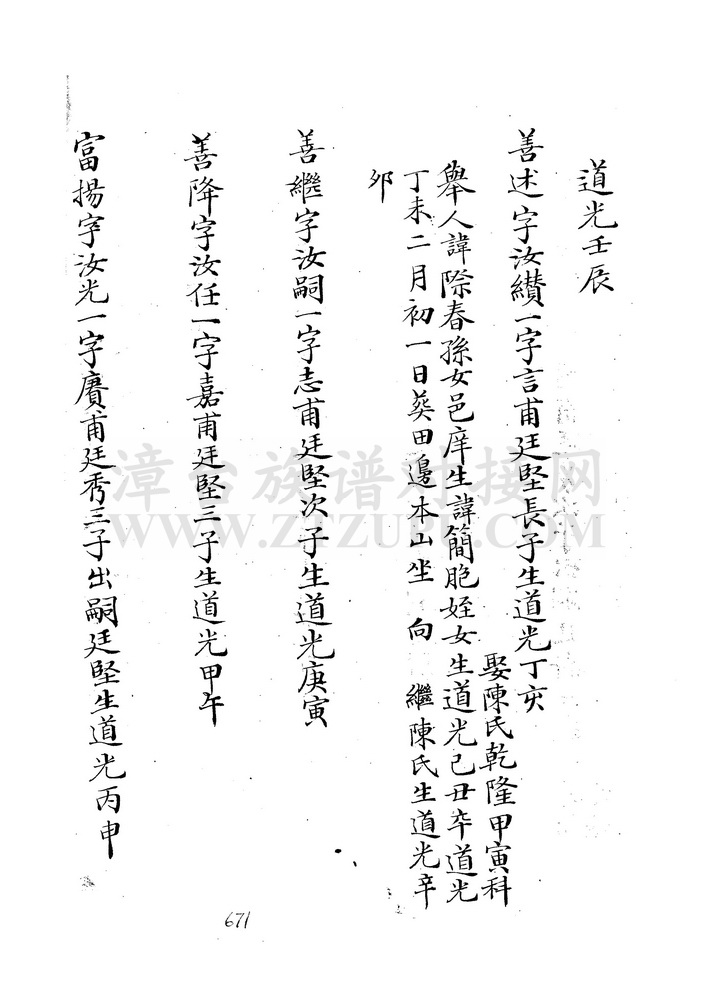 道光壬辰
善述字汝纘一字言甫廷堅長子生道光丁亥
娶陳氏乾隆甲寅科
舉人諱際春孫女邑庠生諱簡胞姪女生道光己丑卒道光
丁未二月初一日葬田邊本山坐 向 繼陳氏生道光辛
卯
善繼字汝嗣一字志甫廷堅次子生道光庚寅
善降字汝任一字嘉甫廷堅三子生道光甲午
富揚字汝光一字賡甫廷秀三子出嗣廷堅生道光丙申
漳台族谱对接网
WWW.ZTZUPU.COM
671